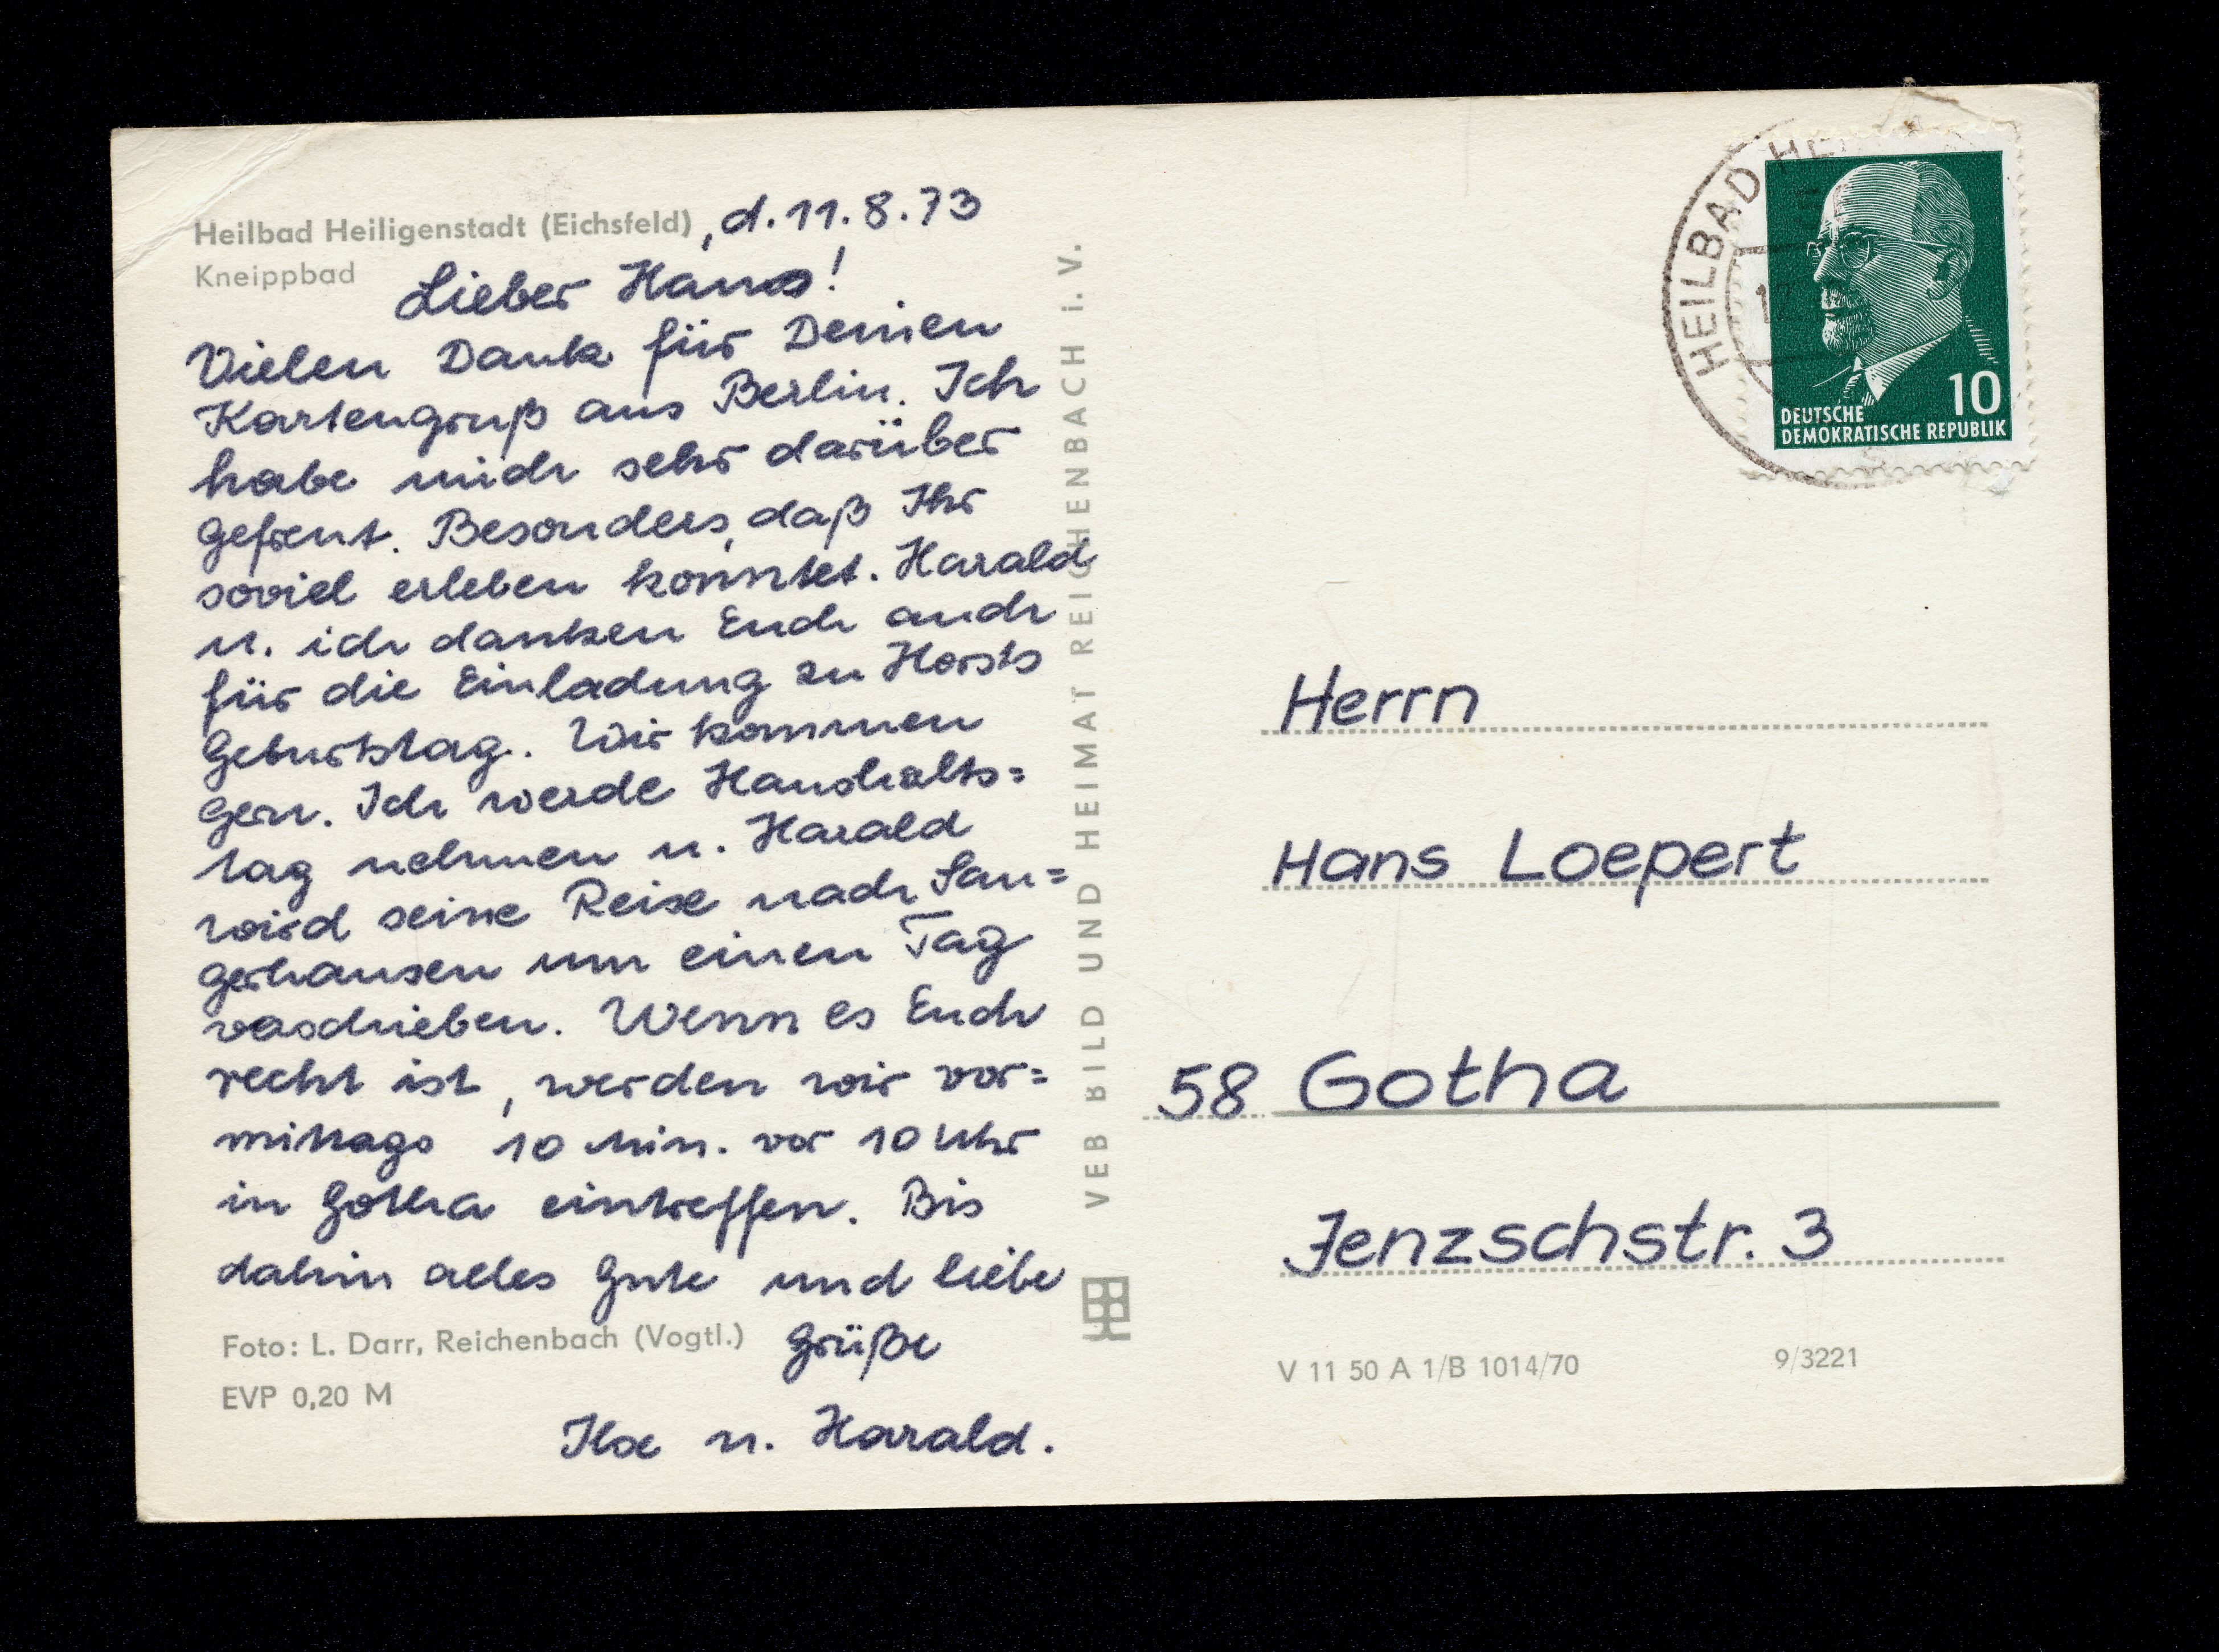 Heilbad Heiligenstadt (Eichsfeld), d. 11.8.73
Kneippbad
Lieber Hans!
Vielen Dank für Deinen
Kartengruß aus Berlin. Ich
habe mich sehr darüber
gefreut. Besonders, daß Ihr
soviel erleben konntet. Harald
u. ich danken Euch auch
für die Einladung zu Horsts
Geburtstag. Wir kommen
gern. Ich werde Haushalts=
tag nehmen u. Harald
wird seine Reise nach San=
gerhausen um einen Tag
verschieben. Wenn es Euch
recht ist, werden wir vor=
mittags 10 Min. vor 10 Uhr
in Gotha eintreffen. Bis
dahin alles Gute und liebe
Grüße
Ilse u. Harald.
Foto: L. Darr, Reichenbach (Vogtl.)
EVP 0,20 M
VEB BILD UND HEIMAT REICHENBACH i. V.
HEILBAD HE
10
DEUTSCHE
DEMOKRATISCHE REPUBLIK
Herrn
Hans Loepert
58 Gotha
Jenzschstr. 3
V 11 50 A 1/B 1014/70 9/3221